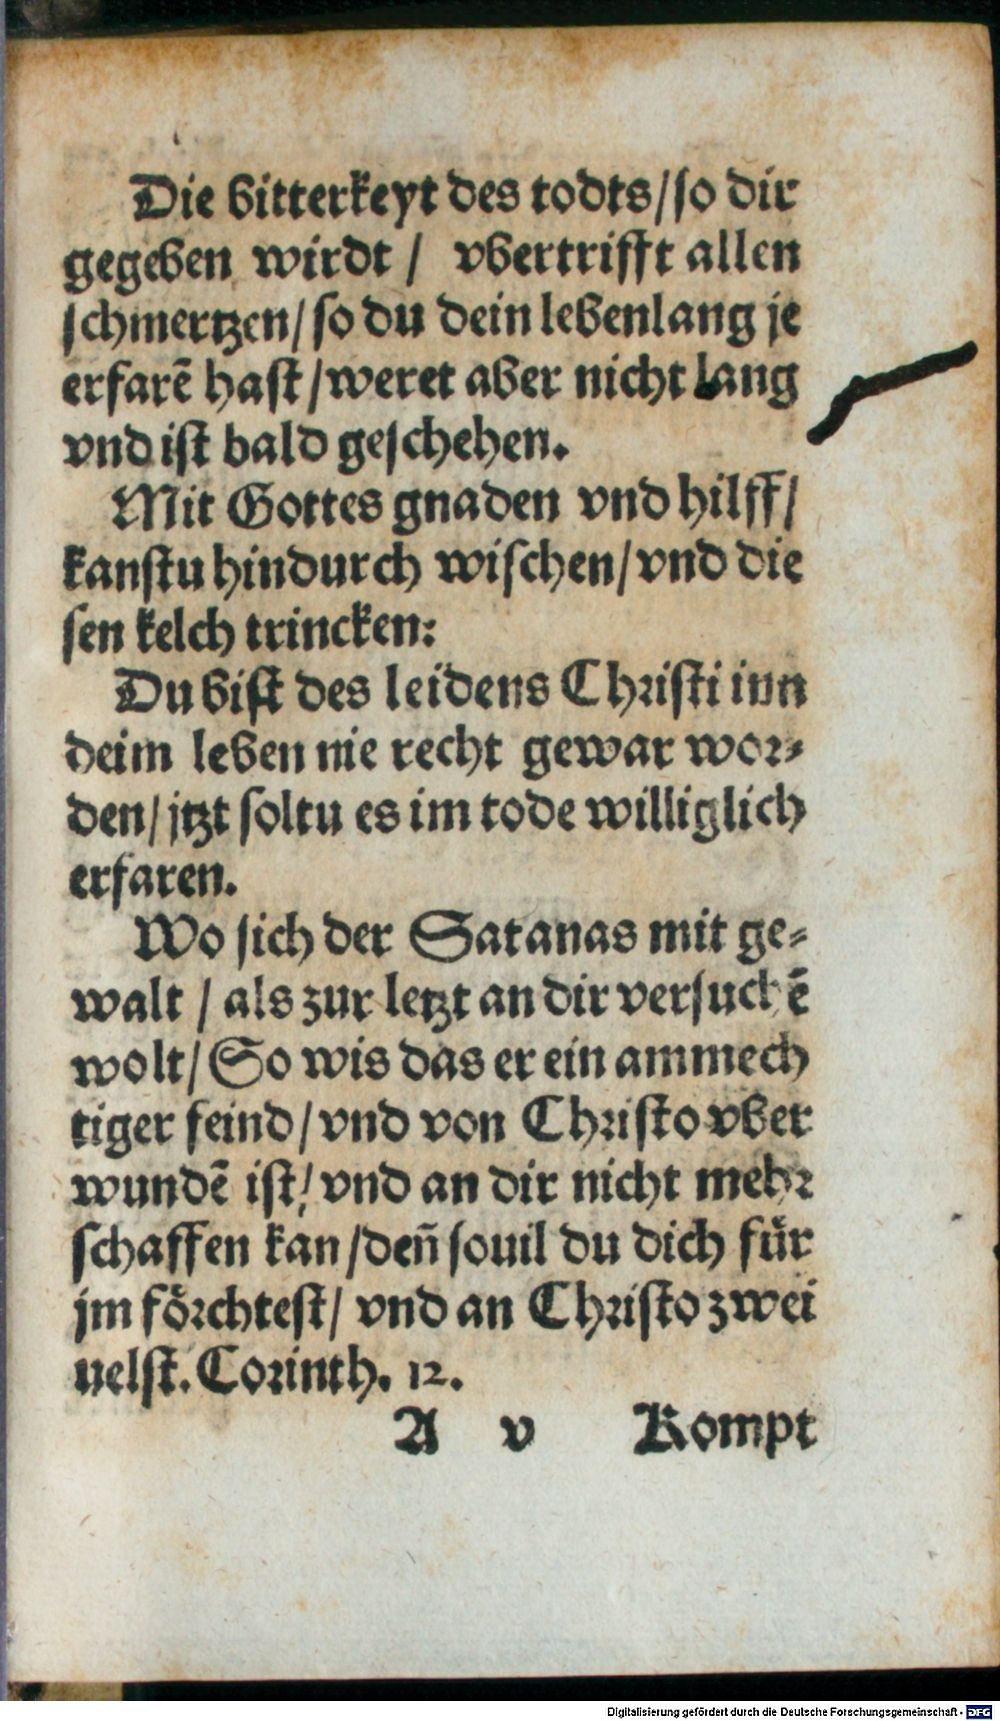 Die bitterkeyt des todts/so dir
gegeben wirdt / vbertrifft allen
schmertzen/so du dein lebenlang je
erfarē hast/weret aber nicht lang
vnd ist bald geschehen.
Mit Gottes gnaden vnd hilff/
kanstu hindurch wischen/vnd die
sen kelch trincken:
Du bist des leidens Christi inn
deim leben nie recht gewar wor-
den/jtzt soltu es im tode williglich
erfaren.
Wo sich der Satanas mit ge-
walt / als zur letzt an dir versuchē
wolt/So wis das er ein ammech
tiger feind/vnd von Christo vber
wundē ist/vnd an dir nicht mehr
schaffen kan/den̄ souil du dich fuͤr
jm foͤrchtest/ vnd an Christo zwei
uelst. Corinth. 12.
A v Kompt
Digitalisierung gefördert durch die Deutsche Forschungsgemeinschaft - DFG